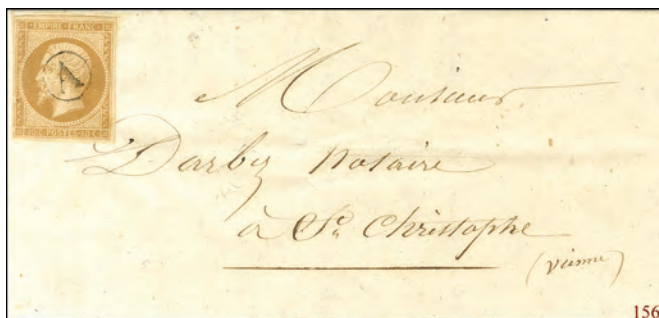 EMPIRE FRANC
A
10C POSTES 10C
Monsieur
Darbiz notaire
à St. Christophe
(Vienne)
156